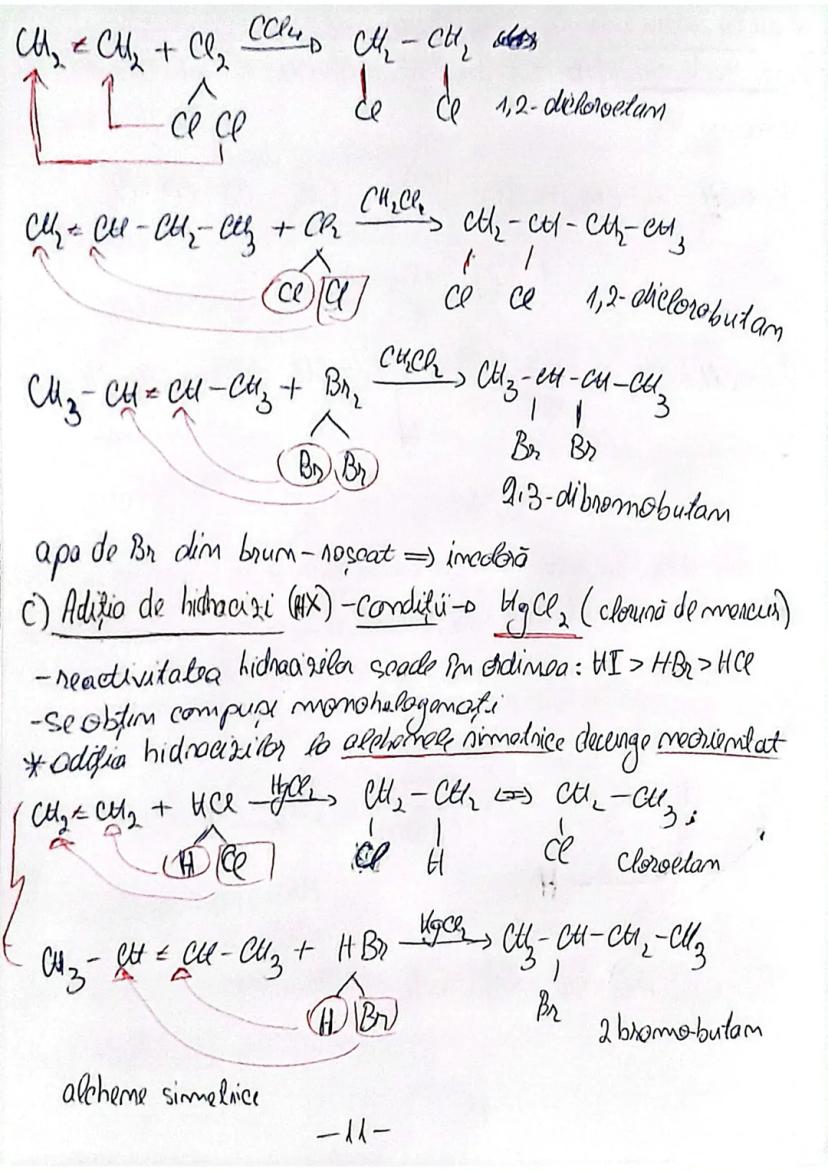 CH₂ = CH₂ + Cl₂ —CCl₄→ CH₂ – CH₂
Cl Cl Cl Cl 1,2-dicloroetan
CH₂ = CH – CH₂ – CH₃ + Cl₂ —CH₂Cl₂→ CH₂ – CH – CH₂ – CH₃
Cl Cl Cl Cl 1,2-diclorobutan
CH₃ – CH = CH – CH₃ + Br₂ —CH₂Cl₂→ CH₃ – CH – CH – CH₃
Br Br Br Br
2,3-dibromobutan
apa de Br din brun-roșcat => incoloră
C) Adiția de hidracizi (HX) – condiții → HgCl₂ (clorură de mercur)
-reactivitatea hidracizilor scade în ordinea: HI > HBr > HCl
-se obțin compuși monohalogenați
* adiția hidracizilor la alchenele simetrice decurge neorientat
CH₂ = CH₂ + HCl —HgCl₂→ CH₂ – CH₂ <=> CH₂ – CH₃;
H Cl Cl H Cl cloroetan
CH₃ – CH = CH – CH₃ + HBr —HgCl₂→ CH₃ – CH – CH₂ – CH₃
H Br Br 2 bromo-butan
alchene simetrice
-11-